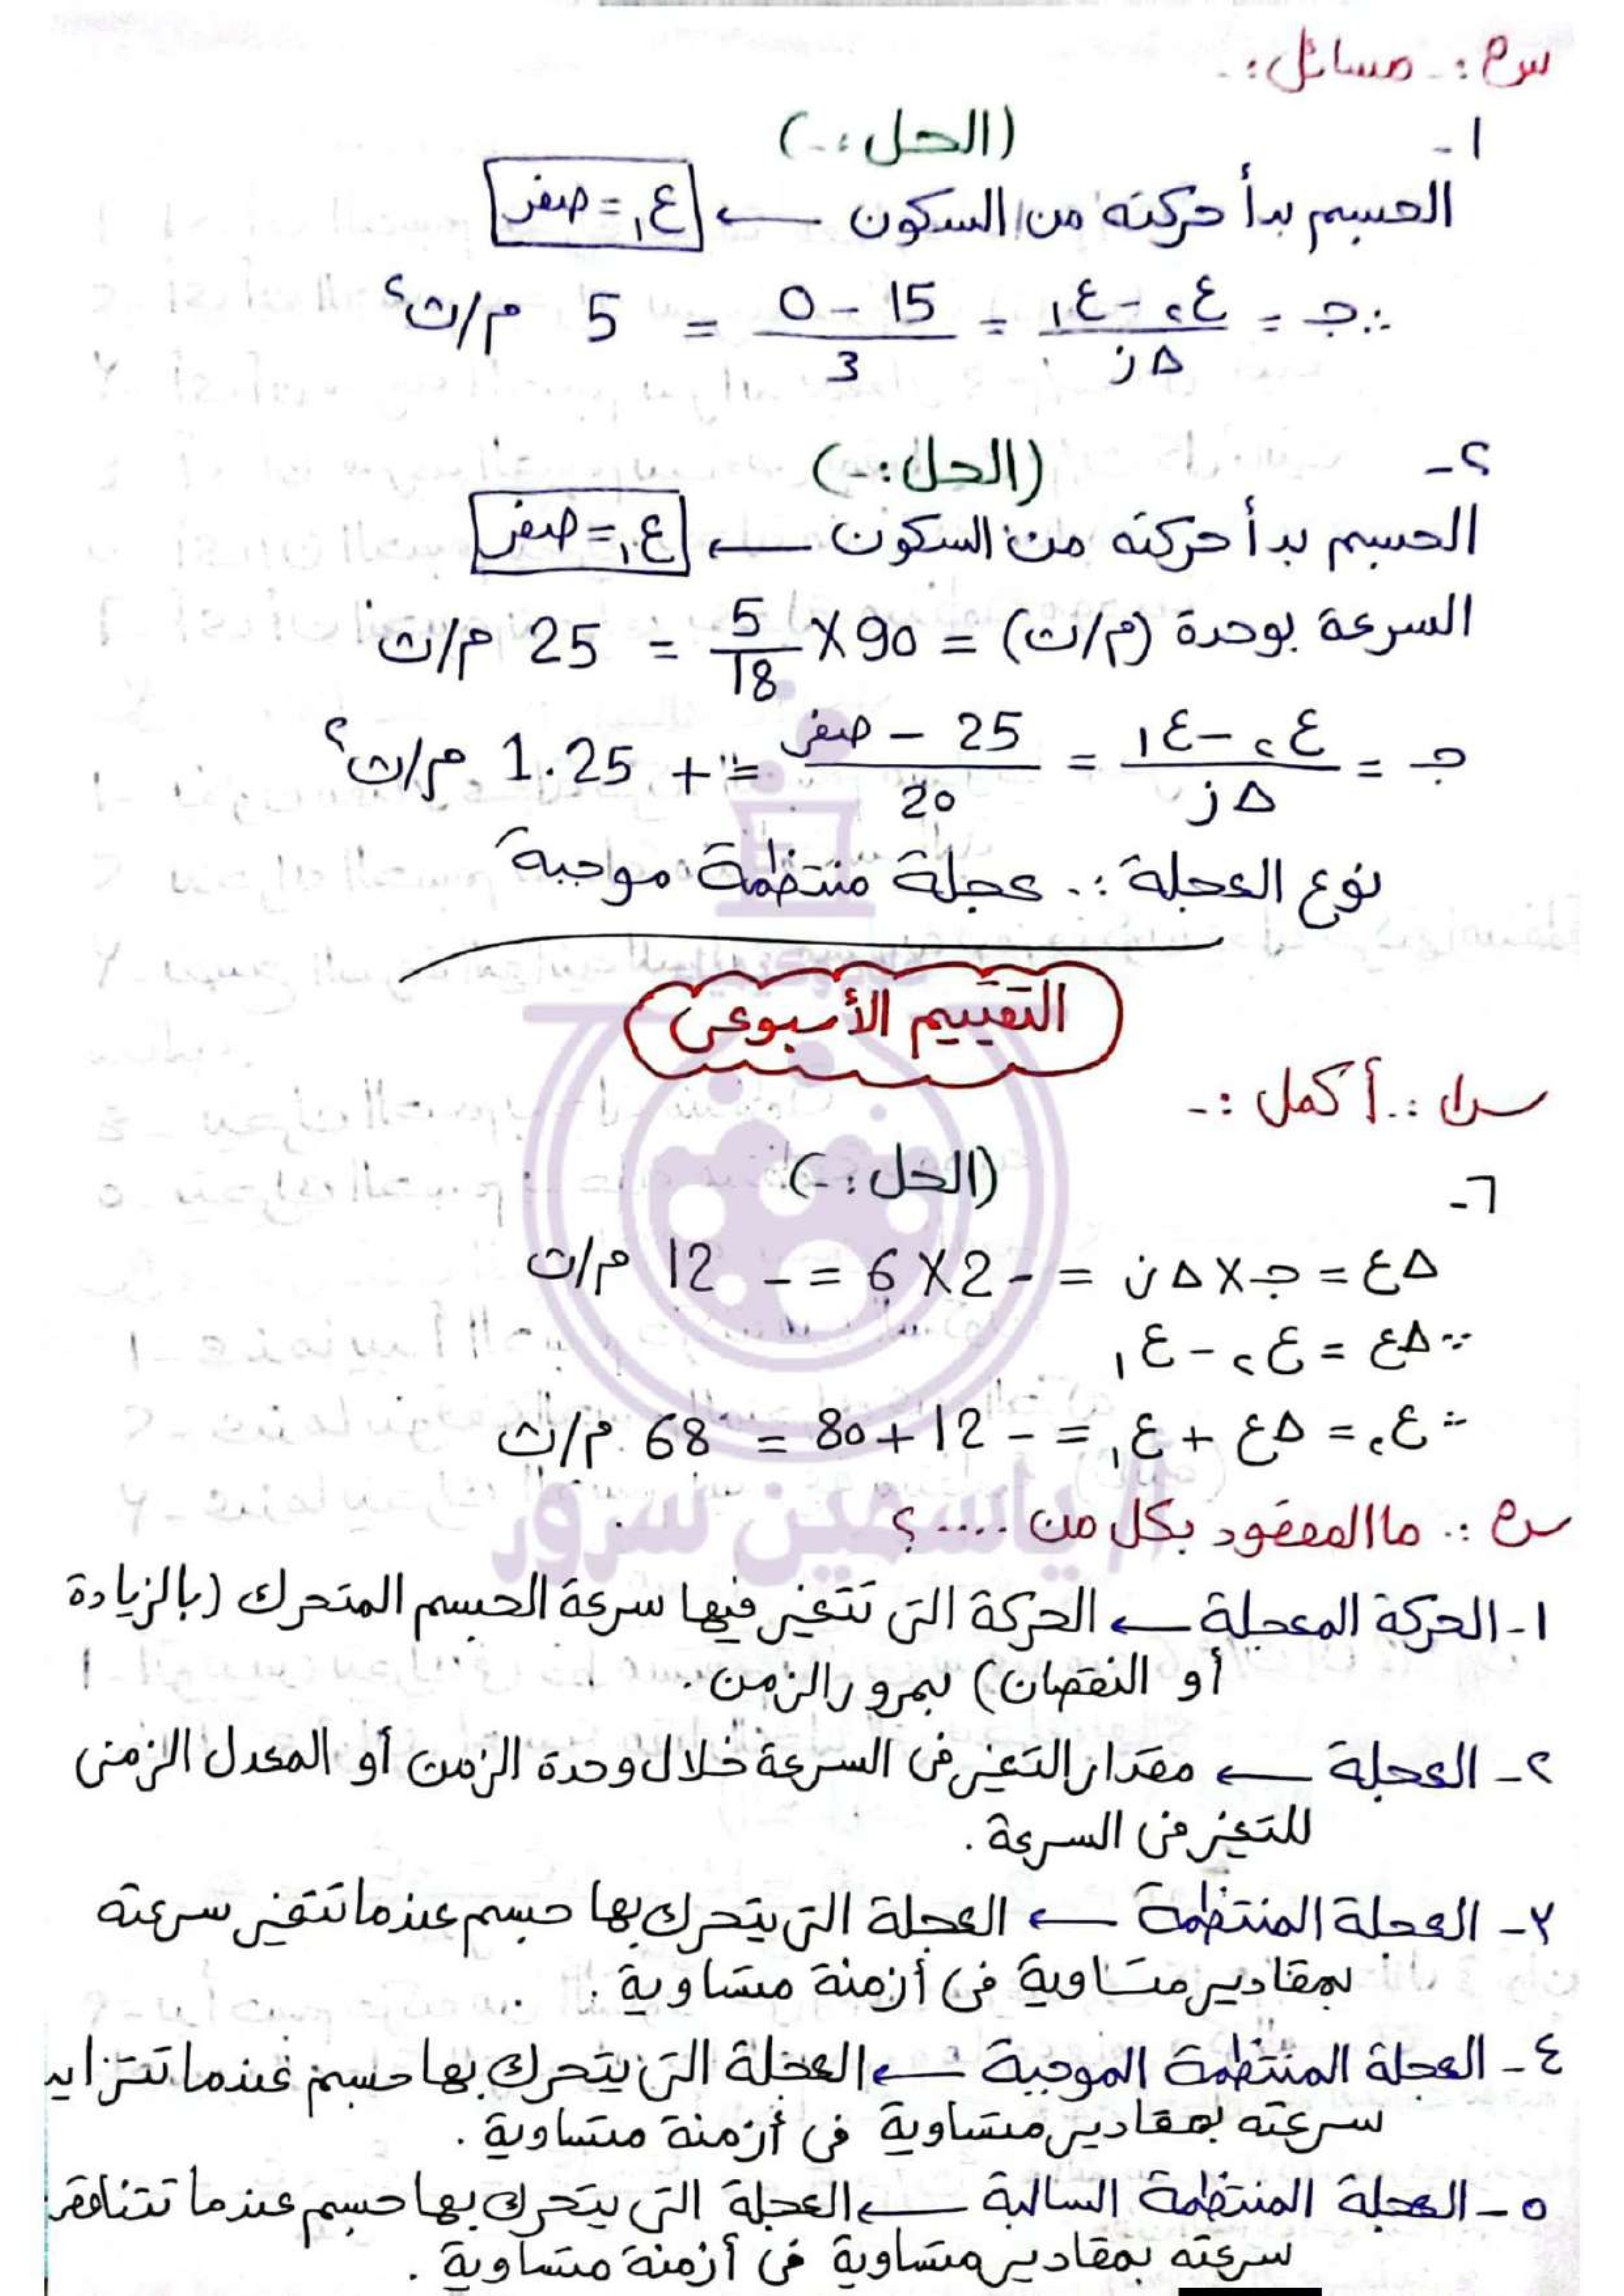 س٣ :- مسائل :-
١- (الحل :-)
الجسم بدأ حركته من السكون ← ع١ = صفر
∴ جـ = (ع٢ - ع١) / Δز = (15 - 0) / 3 = 5 م/ث٢
٢- (الحل :-)
الجسم بدأ حركته من السكون ← ع١ = صفر
السرعة بوحدة (م/ث) = 90 × 5/18 = 25 م/ث
جـ = (ع٢ - ع١) / Δز = (25 - صفر) / 20 = + 1.25 م/ث٢
نوع العجلة :. عجلة منتظمة موجبة
التقييم الأسبوعى
س١ :. أكمل :-
٦- (الحل :-)
Δع = جـ × Δز = - 2 × 6 = - 12 م/ث
∵ Δع = ع٢ - ع١
∴ ع٢ = Δع + ع١ = - 12 + 80 = 68 م/ث
أ/ ياسمين سرور
س٣ :. ما المقصود بكل من .... ؟
١- الحركة المعجلة ← الحركة التى تتغير فيها سرعة الجسم المتحرك (بالزيادة
أو النقصان) بمرور الزمن.
٢- العجلة ← مقدار التغير فى السرعة خلال وحدة الزمن أو المعدل الزمنى
للتغير فى السرعة.
٣- العجلة المنتظمة ← العجلة التى يتحرك بها جسم عندما تتغير سرعته
بمقادير متساوية فى أزمنة متساوية.
٤- العجلة المنتظمة الموجبة ← العجلة التى يتحرك بها جسم عندما تتزايد
سرعته بمقادير متساوية فى أزمنة متساوية.
٥- العجلة المنتظمة السالبة ← العجلة التى يتحرك بها جسم عندما تتناقص
سرعته بمقادير متساوية فى أزمنة متساوية.